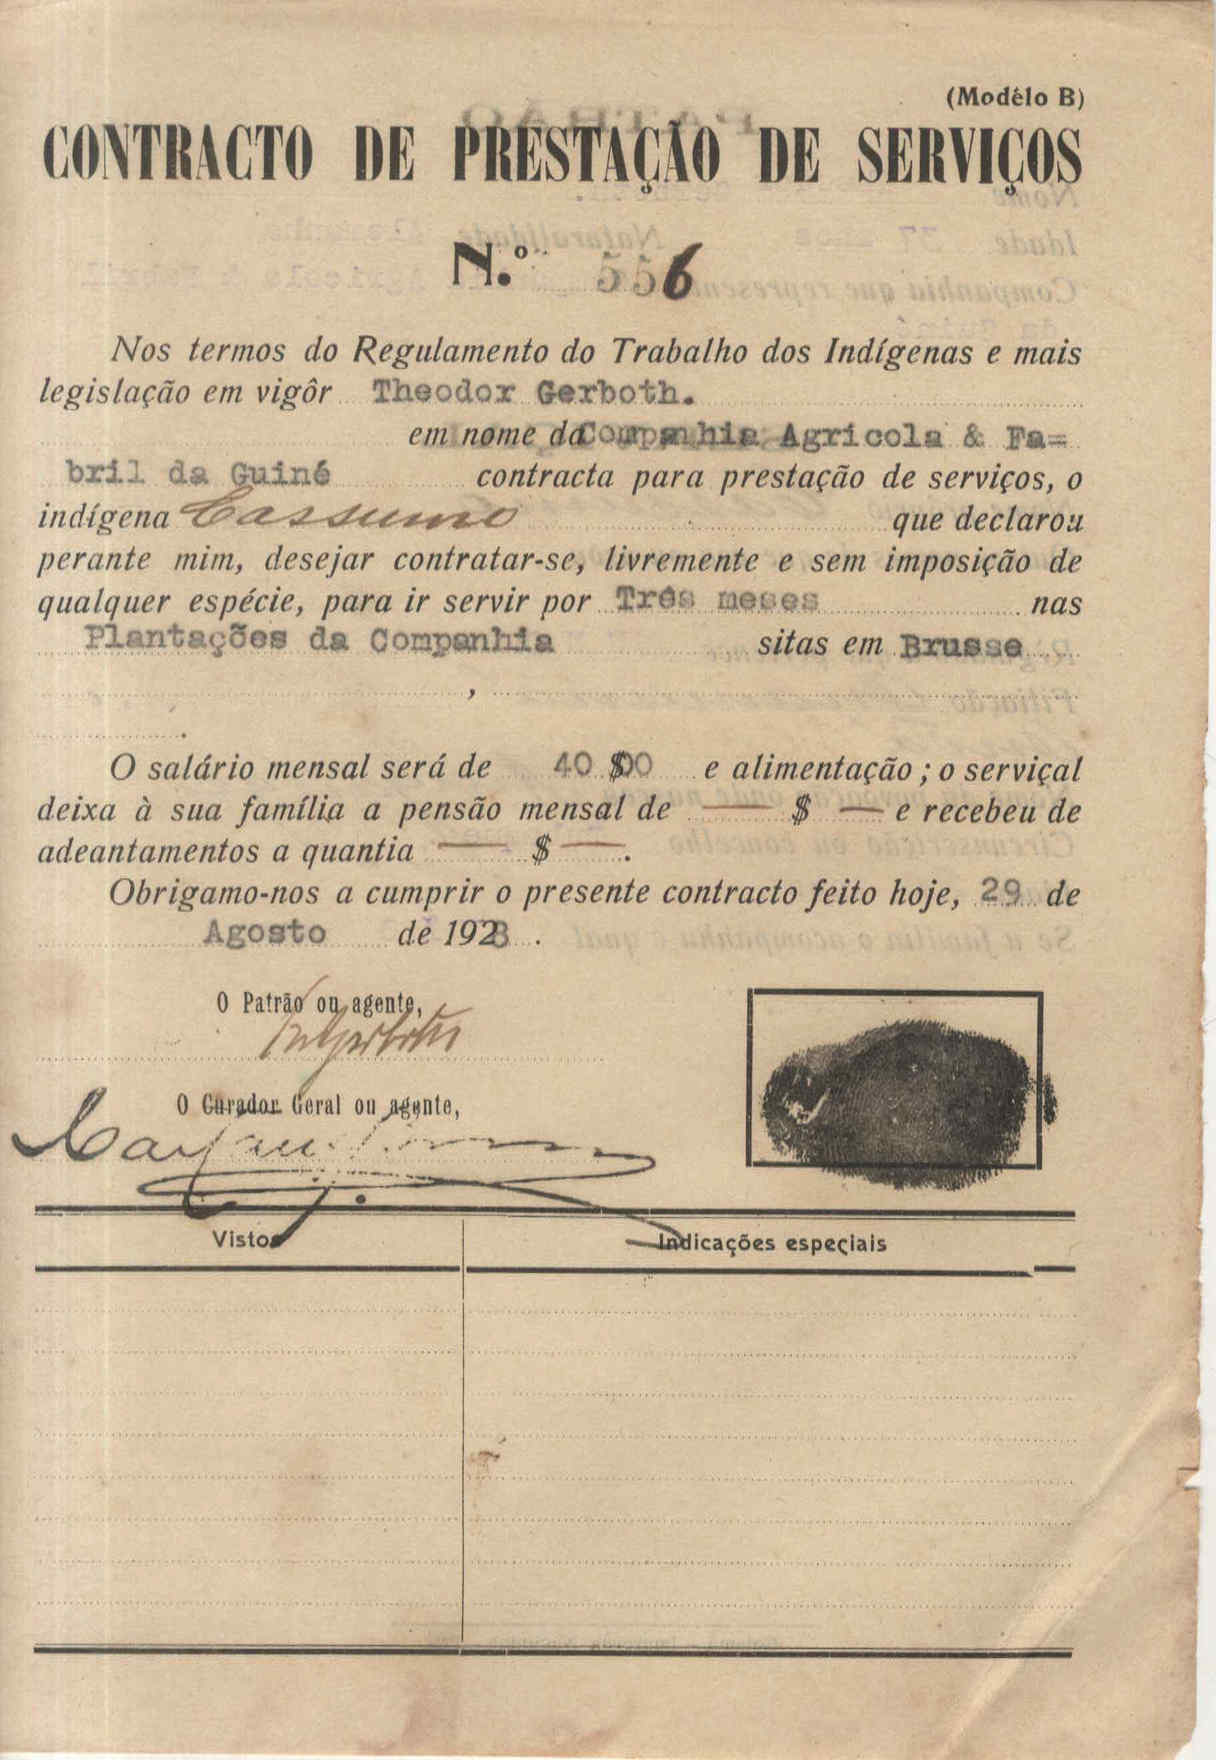 (Modêlo B)
CONTRACTO DE PRESTAÇÃO DE SERVIÇOS
N.º 556
Nos termos do Regulamento do Trabalho dos Indígenas e mais
legislação em vigôr Theodor Gerboth.
em nome da Companhia Agricola & Fa=
bril da Guiné contracta para prestação de serviços, o
indígena Cassumo que declarou
perante mim, desejar contratar-se, livremente e sem imposição de
qualquer espécie, para ir servir por Trés meses nas
Plantações da Companhia sitas em Brusse
,
.
O salário mensal será de 40$00 e alimentação ; o serviçal
deixa à sua família a pensão mensal de — $ — e recebeu de
adeantamentos a quantia — $ — .
Obrigamo-nos a cumprir o presente contracto feito hoje, 29 de
Agosto de 1928 .
O Patrão ou agente,
O Curador Geral ou agente,
Vistos Indicações especiais